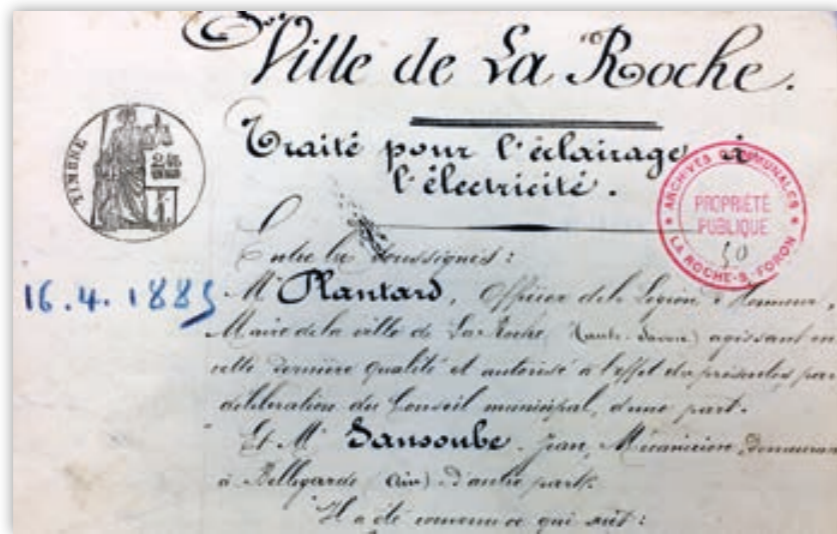 Ville de La Roche.
Traité pour l'éclairage à
l'électricité.
TIMBRE
ARCHIVES COMMUNALES
PROPRIÉTÉ
PUBLIQUE
50
LA ROCHE-S. FORON
Entre les soussignés :
16.4.1885
Mr Plantard, Officier de la Légion d'Honneur
Maire de la ville de La Roche (Haute-Savoie) agissant en
cette dernière qualité et autorisé à l'effet des présentes par
délibération du Conseil municipal, d'une part.
Et Mr Sansoube, Jean, Mécanicien, demeurant
à Bellegarde (Ain) d'autre part.
Il a été convenu ce qui suit :